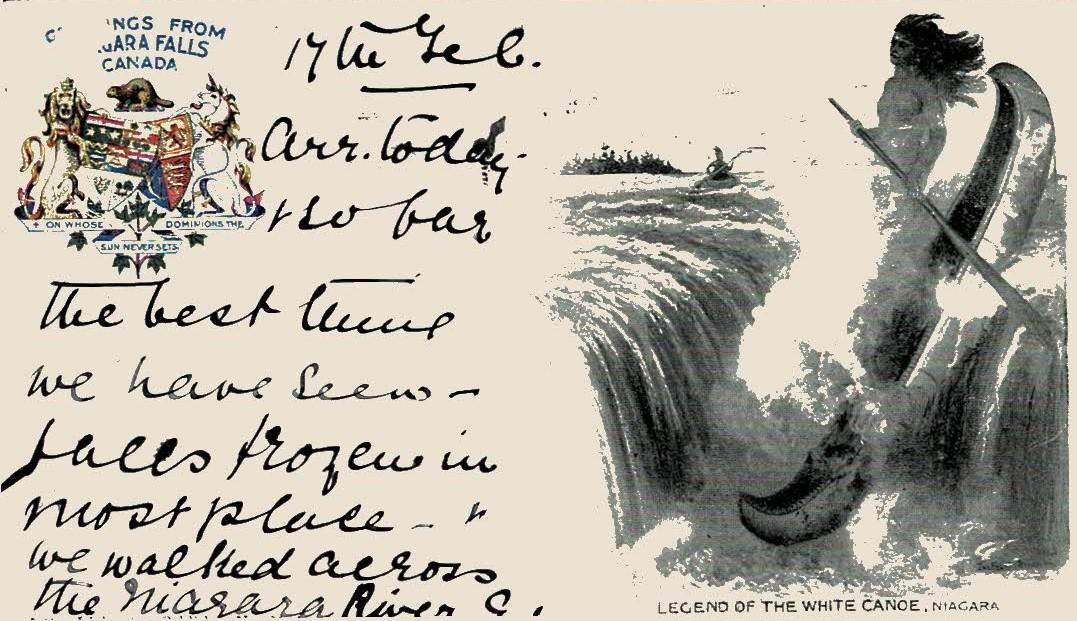 INGS FROM
GARA FALLS
CANADA
+ ON WHOSE DOMINIONS THE
SUN NEVER SETS
17th Feb.
Arr. today
+ so far
the best thing
we have seen –
falls frozen in
most place – "
we walked across
the Niagara River C.
LEGEND OF THE WHITE CANOE, NIAGARA